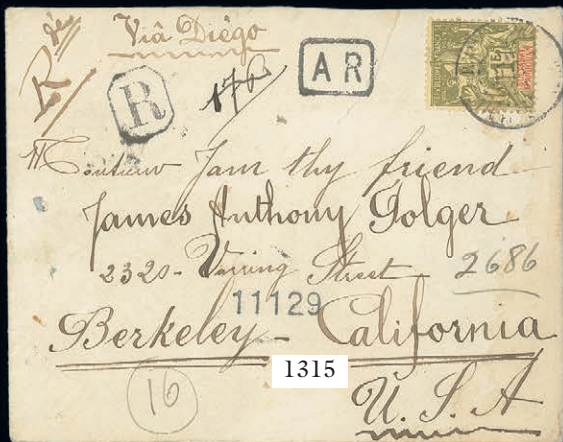 Viâ Diégo
R
176
AR
Monsieur Jam thy friend
James Anthony Folger
2320 - Street
2686
11129
Berkeley - California
1315
16
U. S. A